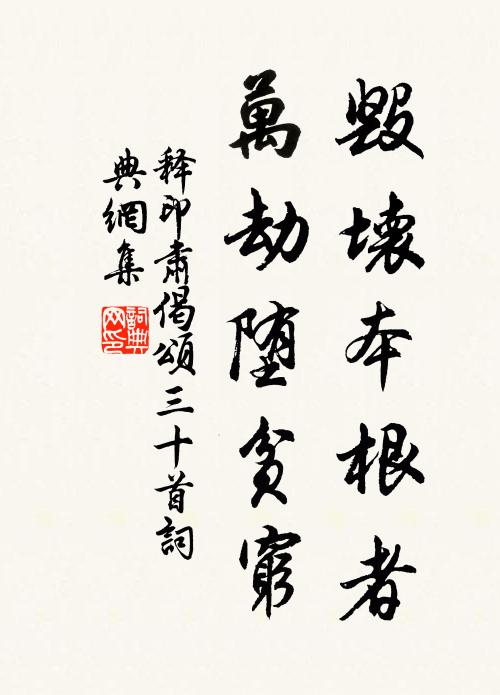 毀壞本根者
萬劫堕貧窮
释印肅偈頌三十首詞
典網集
詞典网印